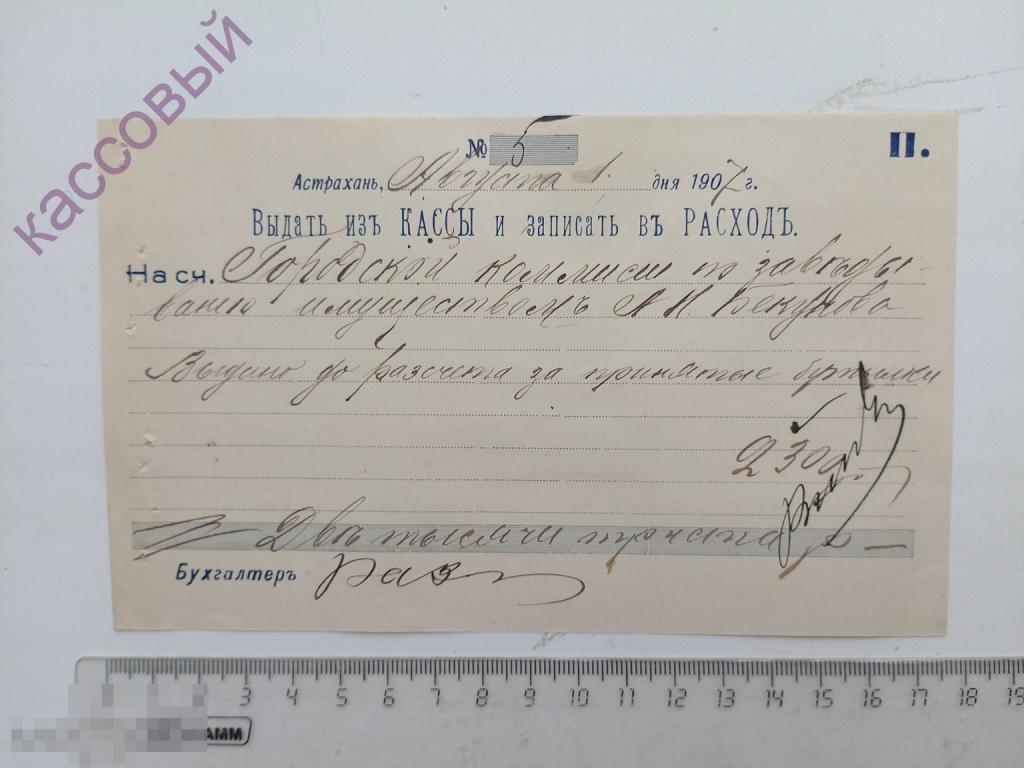 кассовый
№ 5
П.
Астрахань, Августа 1 дня 1907 г.
Выдать изъ КАССЫ и записать въ РАСХОДЪ.
На сч. Городской коммисіи по завѣды-
ванію имуществомъ А. И. Бекунова
Выдано до разсчета за принятые бутылки
2300 —
Двѣ тысячи триста р —
Бухгалтеръ
3 4 5 6 7 8 9 10 11 12 13 14 15 16 17 18 19
АММ